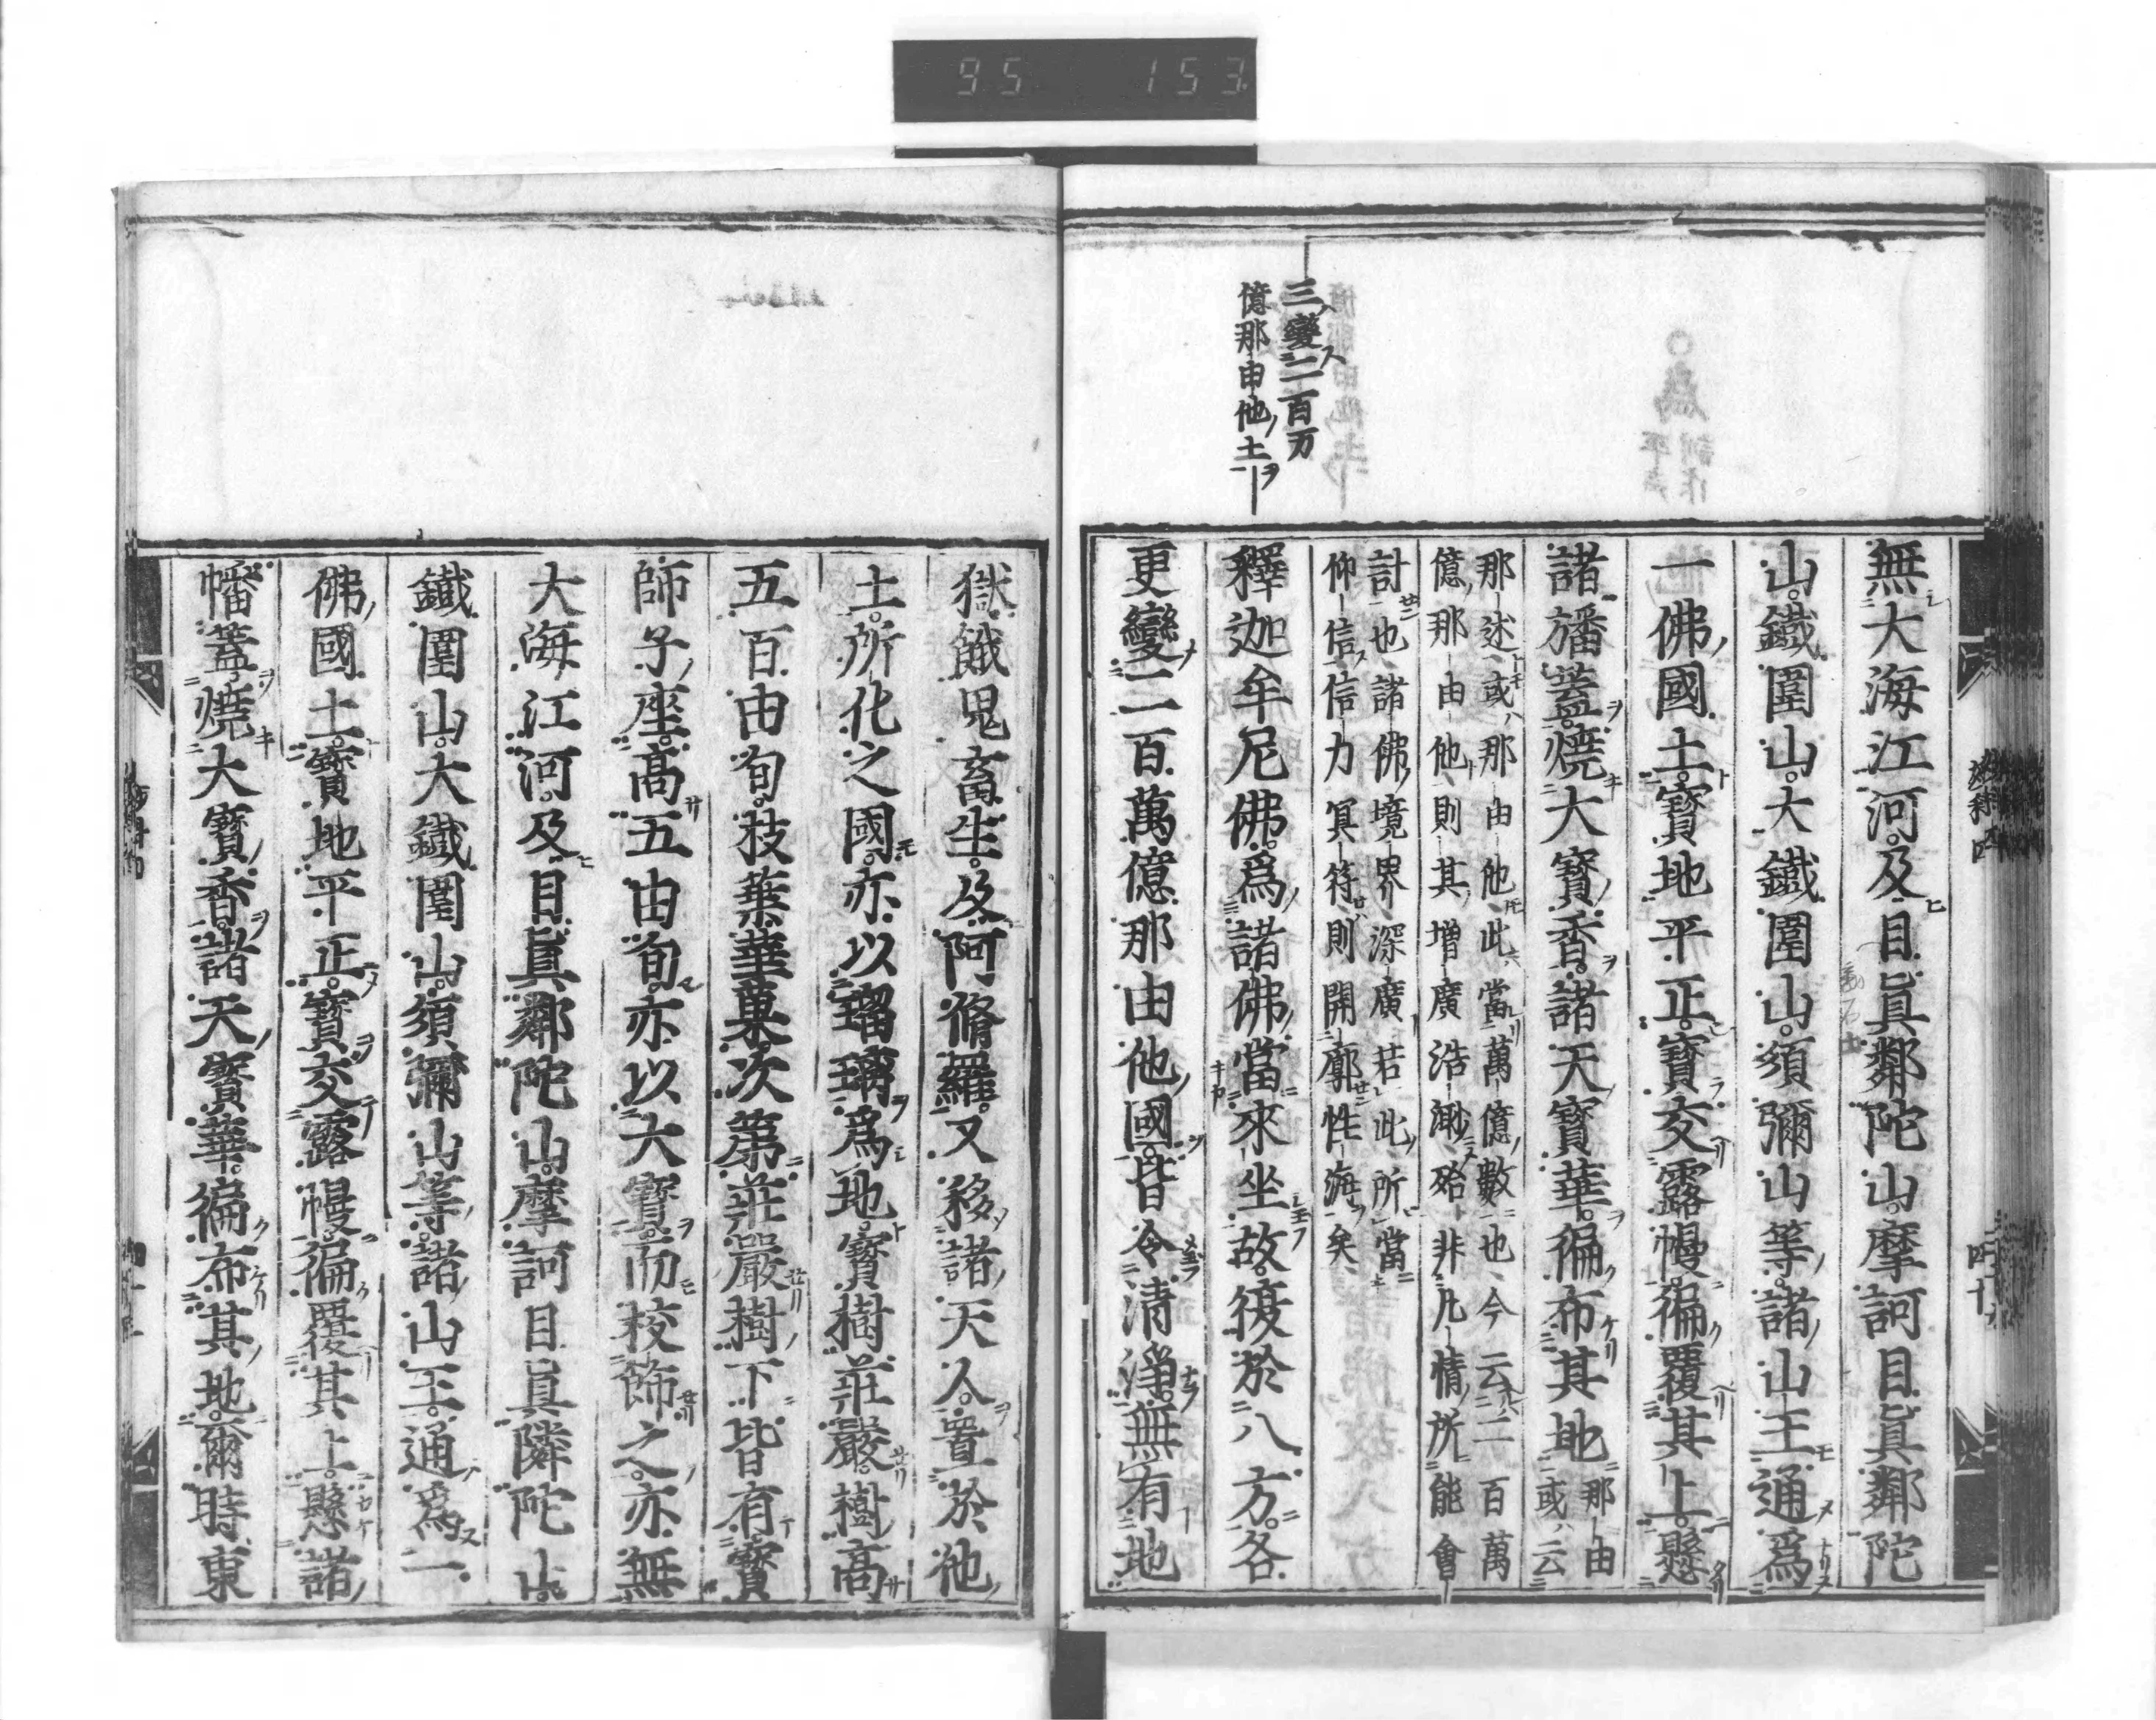 95 153
三變二百万
億那由他土
無大海江河。及目眞鄰陀山。摩訶目眞鄰陀
山。鐵圍山。大鐵圍山。須彌山等。諸山王通爲
一佛國土。寶地平正。寶交露幔。徧覆其上。懸
諸旛蓋。燒大寶香。諸天寶華。徧布其地
那由
或云
那述或那由他此當萬億數也今云二百萬
億那由他則其增廣浩渺殆非凡情所能會
計也諸佛境界深廣若此所當
仰信信力冥符則開廓性海矣
釋迦牟尼佛。爲諸佛當來坐故。復於八方。各
更變二百萬億那由他國。皆令清淨。無有地
獄餓鬼畜生。及阿脩羅。又移諸天人。置於他
土。所化之國。亦以瑠璃爲地。寶樹莊嚴。樹高
五百由旬。枝葉華菓。次第莊嚴。樹下皆有寶
師子座。高五由旬。亦以大寶。而校飾之。亦無
大海江河。及目眞鄰陀山。摩訶目眞隣陀山。
鐵圍山。大鐵圍山。須彌山等。諸山王。通爲一
佛國土。寶地平正。寶交露幔。徧覆其上。懸諸
幡蓋。燒大寶香。諸天寶華。徧布其地。爾時東